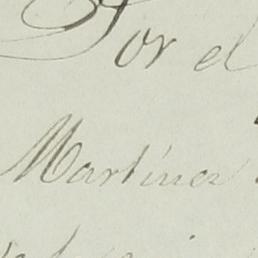 Por el
Martinez